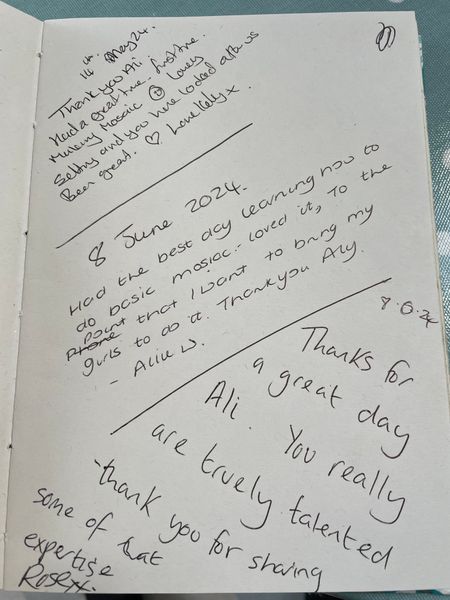 14th May 24.
Thank you Ali.
Had a great time. first time
Making Mosaic & Lovely
Setting and you have looked after us
Been great. ♡ Love Kelly x.
8 June 2024.
Had the best day learning how to
do basic mosiac - loved it, To the
point that I want to bring my
girls to do it. Thankyou Aly.
- Alice W.
8.6.24
Thanks for
a great day
Ali. You really
are truely talented
thank you for sharing
some of that
expertise
Rose xx.